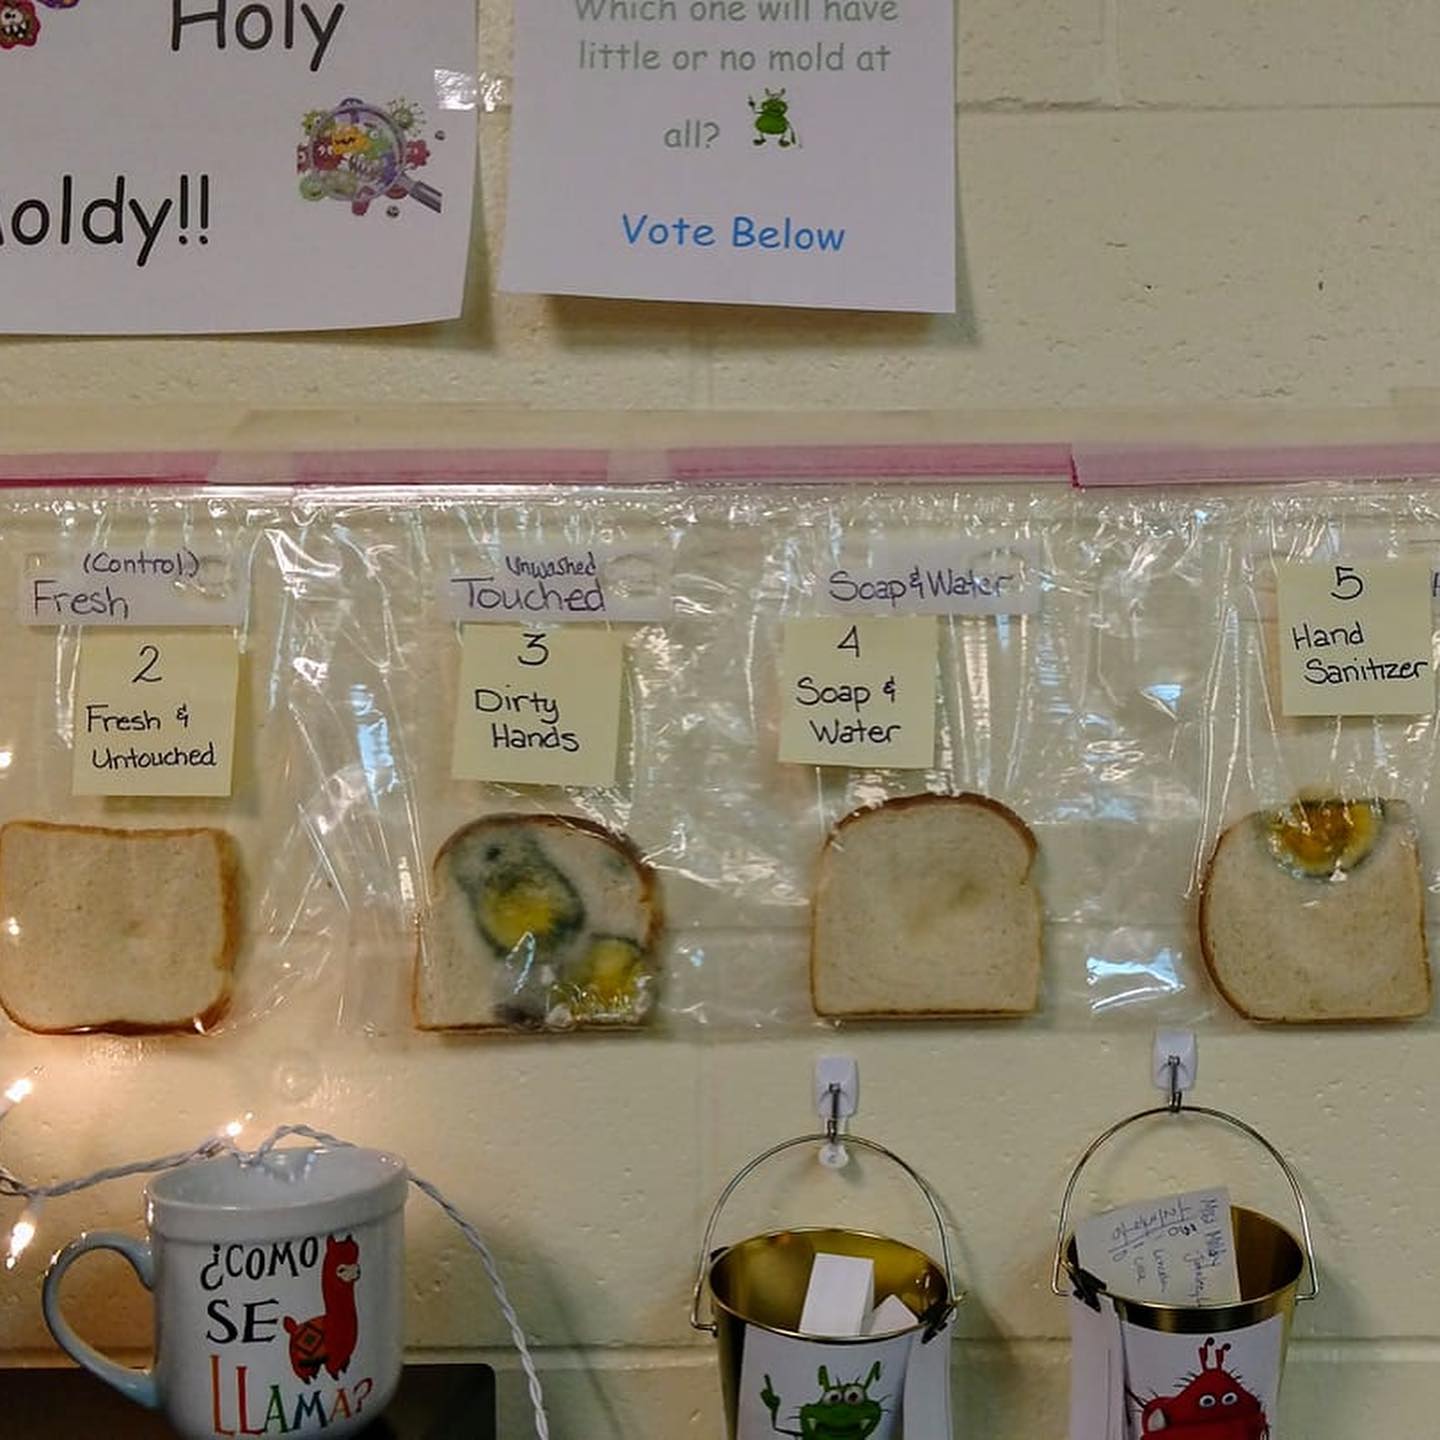 Holy
oldy!!
Which one will have
little or no mold at
all?
Vote Below
(Control)
Fresh
2
Fresh &
Untouched
Unwashed
Touched
3
Dirty
Hands
Soap & Water
4
Soap &
Water
5
Hand
Sanitizer
¿COMO
SE
LLAMA?